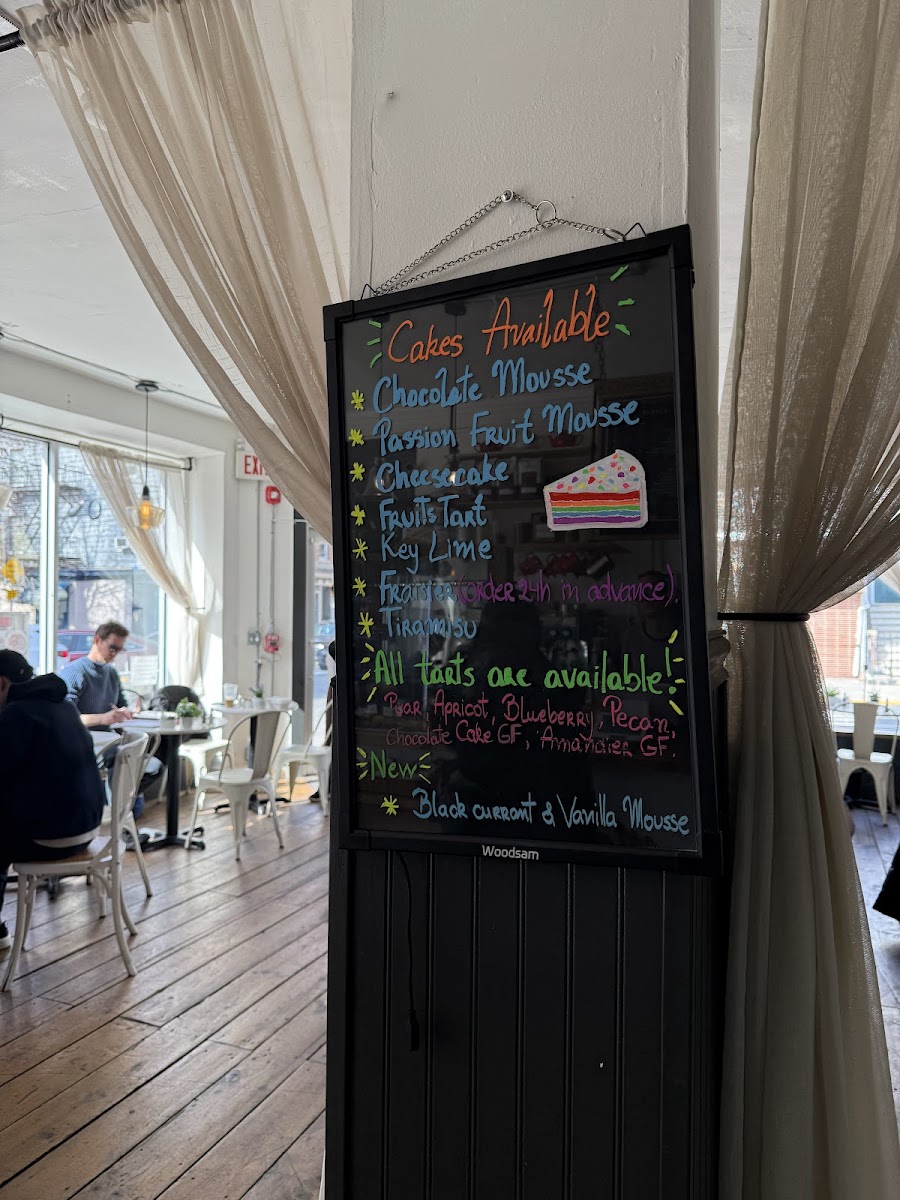 Cakes Available
Chocolate Mousse
Passion Fruit Mousse
Cheesecake
Fruits Tart
Key Lime
Fraisier (order 24h in advance).
Tiramisu
All tarts are available!
Pear, Apricot, Blueberry, Pecan
Chocolate Cake GF, Amandier GF.
New
Black currant & Vanilla Mousse
Woodsam
EXI